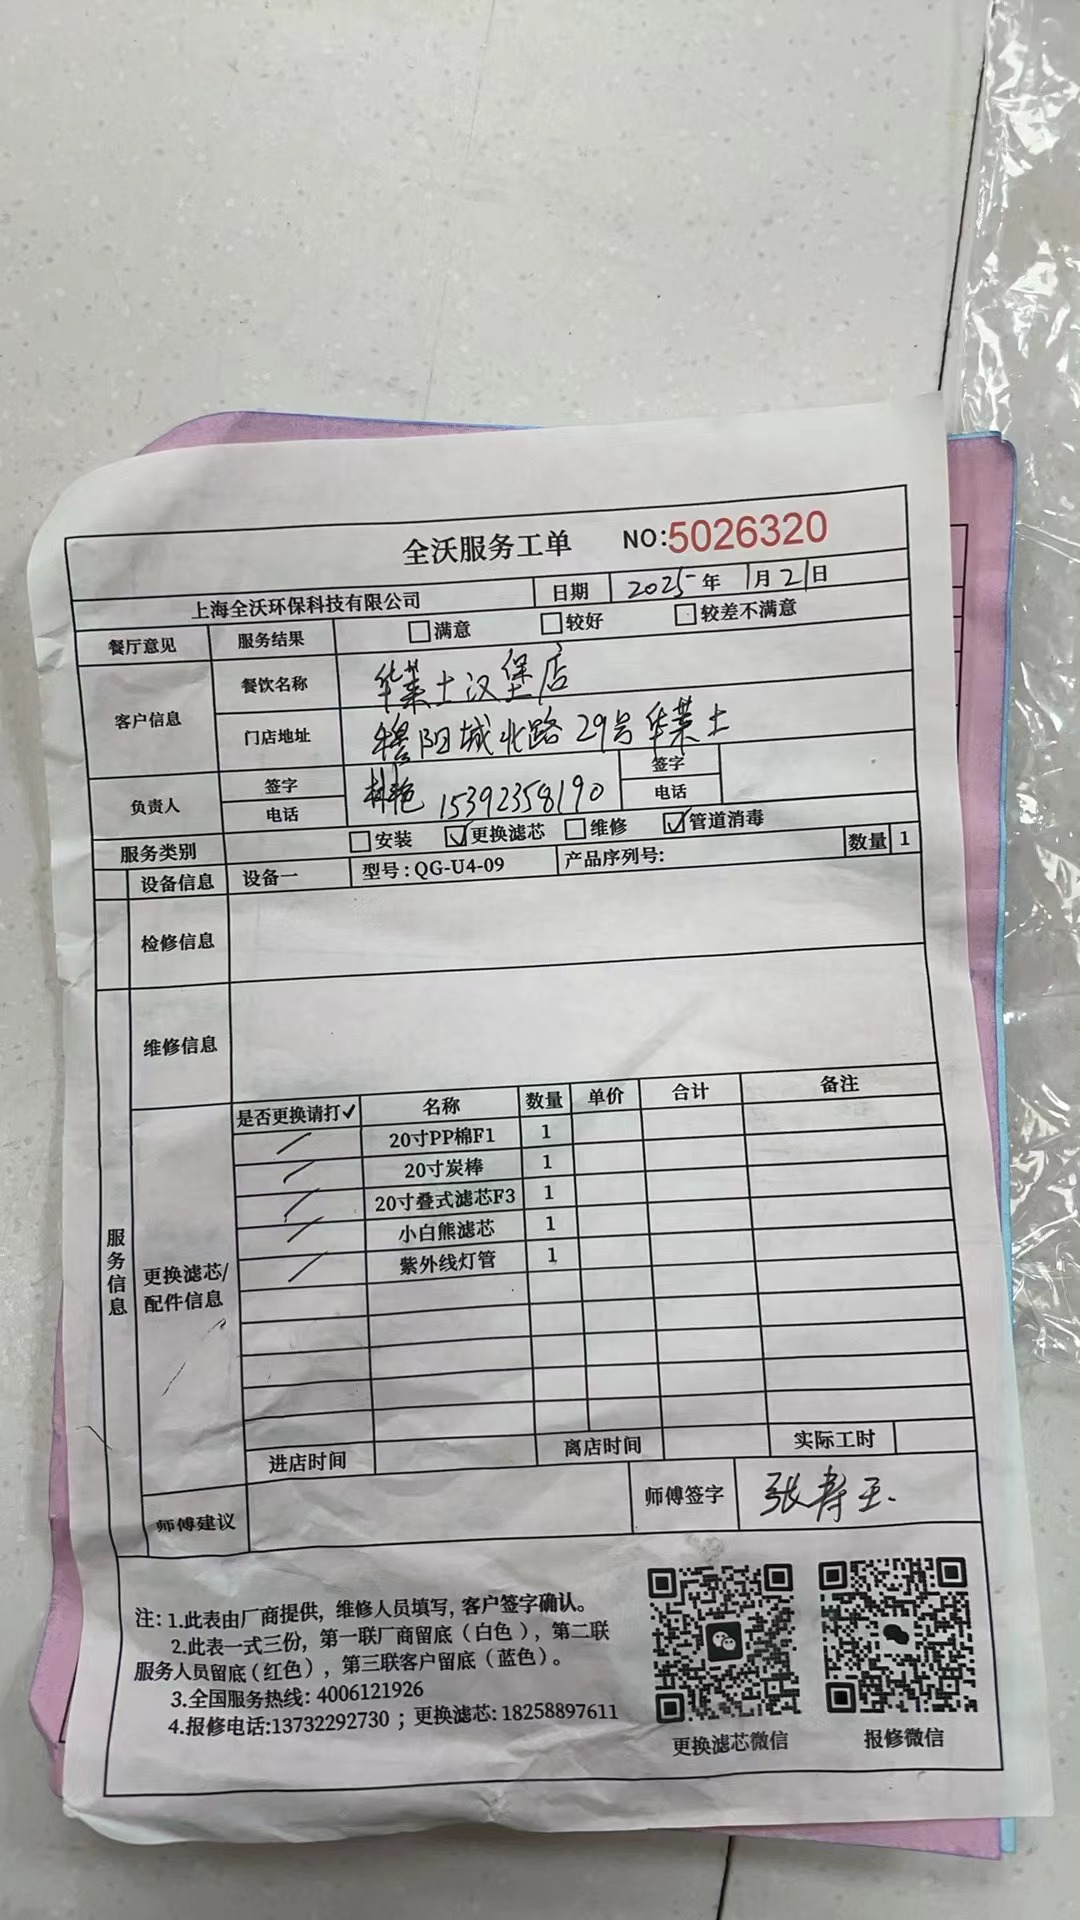 全沃服务工单 NO:5026320
上海全沃环保科技有限公司 日期 2025年 1月21日
餐厅意见 服务结果 满意 较好 较差不满意
客户信息 餐饮名称 华莱士汉堡店
门店地址 穆阳城北路29号华莱士
负责人 签字 签字
电话 15392358190 电话
服务类别 安装 ✓更换滤芯 维修 ✓管道消毒
设备信息 设备一 型号:QG-U4-09 产品序列号: 数量 1
检修信息
维修信息
服务信息
更换滤芯/
配件信息
是否更换请打✓ 名称 数量 单价 合计 备注
20寸PP棉F1 1
20寸炭棒 1
20寸叠式滤芯F3 1
小白熊滤芯 1
紫外线灯管 1
进店时间 离店时间 实际工时
师傅建议 师傅签字 张寿玉
注: 1.此表由厂商提供，维修人员填写，客户签字确认。
2.此表一式三份，第一联厂商留底（白色），第二联
服务人员留底（红色），第三联客户留底（蓝色）。
3.全国服务热线: 4006121926
4.报修电话:13732292730 ；更换滤芯: 18258897611
更换滤芯微信 报修微信